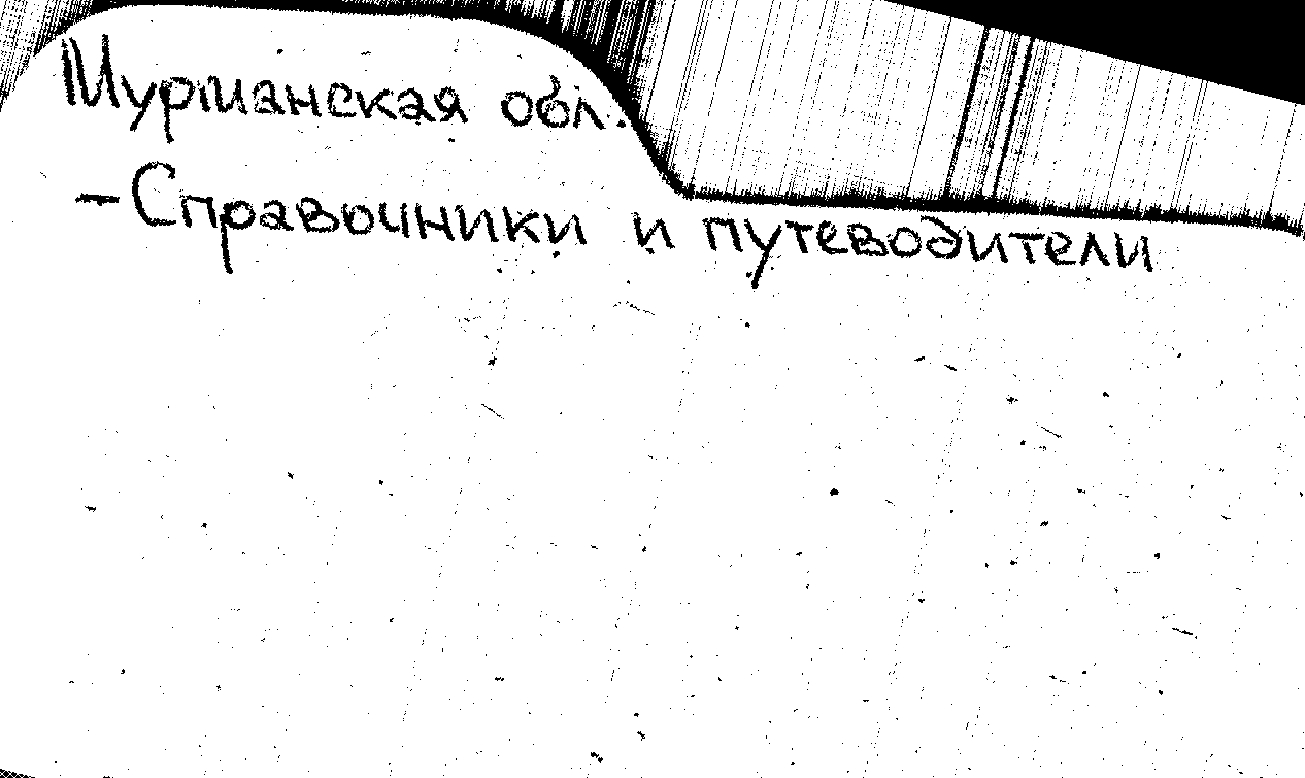 Мурманская обл.
- Справочники и путеводители